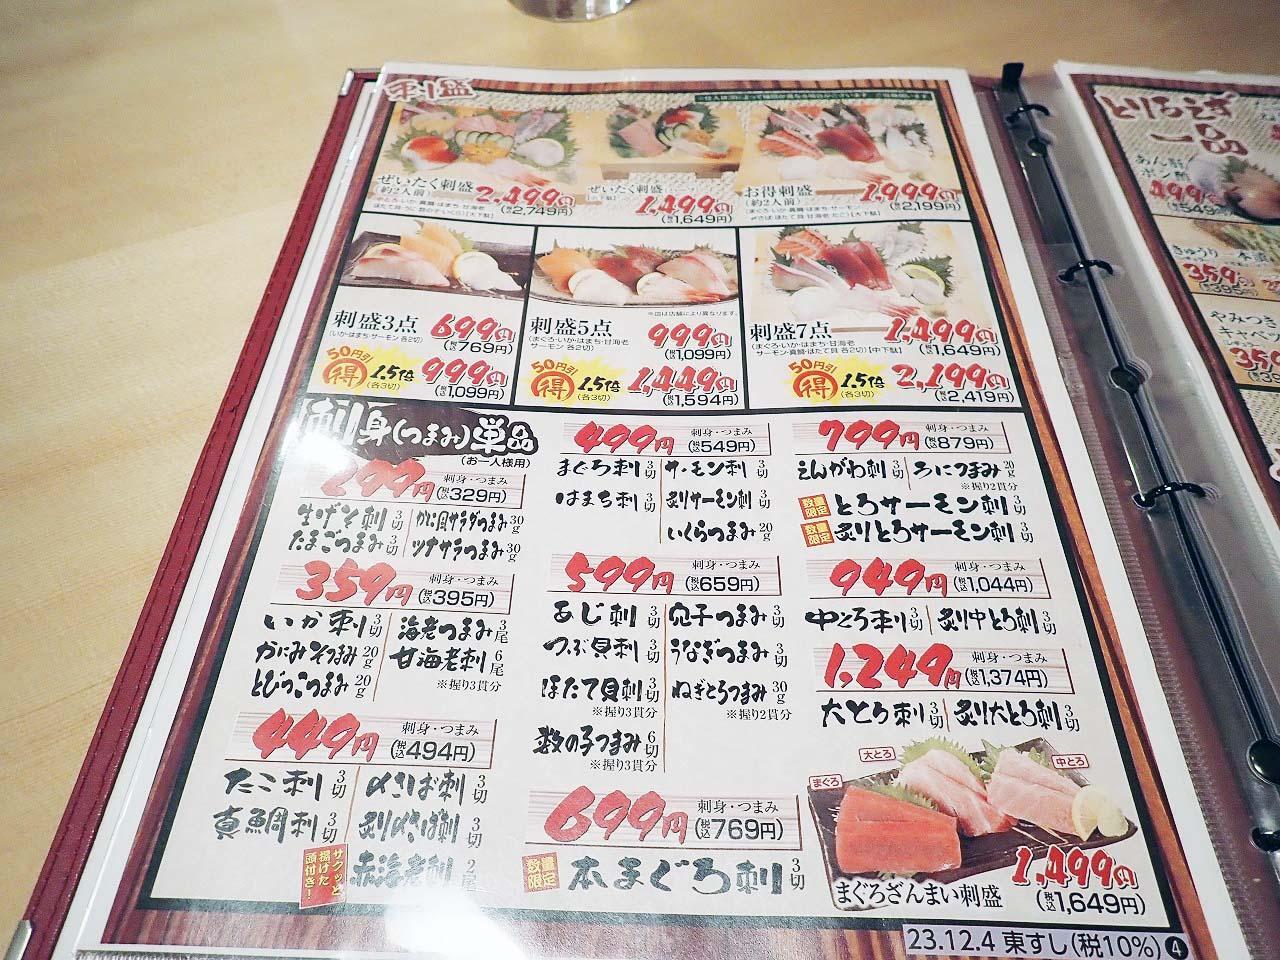 刺盛
ぜいたく刺盛
(約2人前)
2,499円
(税込2,749円)
ぜいたく刺盛
1,499円
(税込1,649円)
お得刺盛
(約2人前)
1,999円
(税込2,199円)
刺盛3点
(いか・はまち・サーモン 各2切)
699円
(税込769円)
50円引 得 1.5倍
(各3切)
999円
(税込1,099円)
※皿は店舗により異なります。
刺盛5点
(まぐろ・いか・はまち・甘海老
サーモン 各2切)
999円
(税込1,099円)
50円引 得 1.5倍
(各3切)
1,449円
(税込1,594円)
刺盛7点
(まぐろ・いか・はまち・甘海老
サーモン・真鯛・ほたて貝 各2切)【中下駄】
1,499円
(税込1,649円)
50円引 得 1.5倍
(各3切)
2,199円
(税込2,419円)
刺身(つまみ)単品
(お一人様用)
299円 刺身・つまみ
(税込329円)
生げそ刺 3切
かに風サラダつまみ 30g
たまごつまみ 3切
ツナサラつまみ 30g
359円 刺身・つまみ
(税込395円)
いか刺 3切
海老つまみ 3尾
かにみそつまみ 20g
甘海老刺 6尾
※握り3貫分
とびっこつまみ 20g
449円 刺身・つまみ
(税込494円)
たこ刺 3切
〆さば刺 3切
真鯛刺 3切
炙り〆さば刺 3切
サクッと
揚げた
頭付き!
赤海老刺 2尾
499円 刺身・つまみ
(税込549円)
まぐろ刺 3切
サーモン刺 3切
はまち刺 3切
炙りサーモン刺 3切
いくらつまみ 20g
599円 刺身・つまみ
(税込659円)
あじ刺 3切
穴子つまみ 3切
つぶ貝刺 3切
うなぎつまみ 3切
ほたて貝刺 3切
※握り3貫分
ねぎとろつまみ 30g
※握り2貫分
数の子つまみ 6切
※握り3貫分
699円 刺身・つまみ
(税込769円)
数量限定 本まぐろ刺 3切
799円 刺身・つまみ
(税込879円)
えんがわ刺 3切
うにつまみ 20g
※握り2貫分
数量限定 とろサーモン刺 3切
数量限定 炙りとろサーモン刺 3切
949円 刺身・つまみ
(税込1,044円)
中とろ刺 3切
炙り中とろ刺 3切
1,249円 刺身・つまみ
(税込1,374円)
大とろ刺 3切
炙り大とろ刺 3切
まぐろ
大とろ
中とろ
まぐろざんまい刺盛
1,499円
(税込1,649円)
23.12.4 東すし(税10%) 4
とりあえず
一品
あん肝
ポン酢
499円
税込549円
きゅうり一本漬
359円
税込395円
やみつき
キャベ